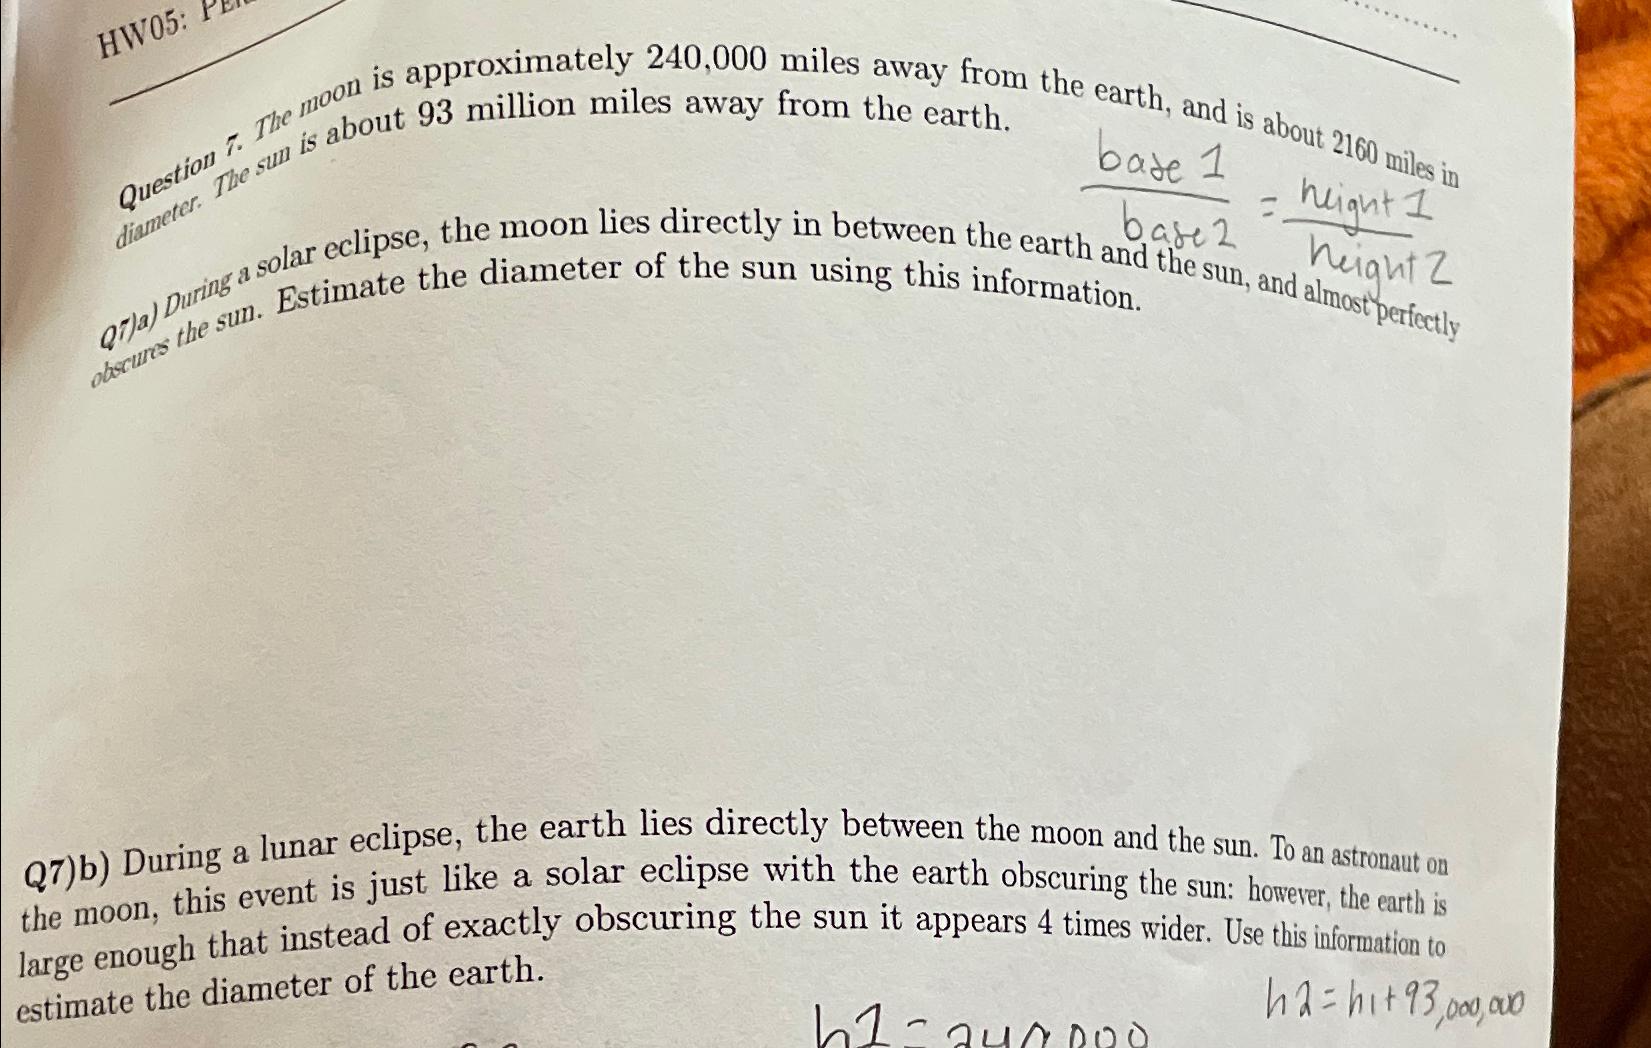 HW05:
Question 7. The moon is approximately 240,000 miles away from the earth, and is about 2160 miles in
diameter. The sun is about 93 million miles away from the earth.
base 1 = height 1
base 2 height 2
Q7)a) During a solar eclipse, the moon lies directly in between the earth and the sun, and almost perfectly
obscures the sun. Estimate the diameter of the sun using this information.
Q7)b) During a lunar eclipse, the earth lies directly between the moon and the sun. To an astronaut on
the moon, this event is just like a solar eclipse with the earth obscuring the sun: however, the earth is
large enough that instead of exactly obscuring the sun it appears 4 times wider. Use this information to
estimate the diameter of the earth.
h2 = h1 + 93,000,000
h1 = 240000